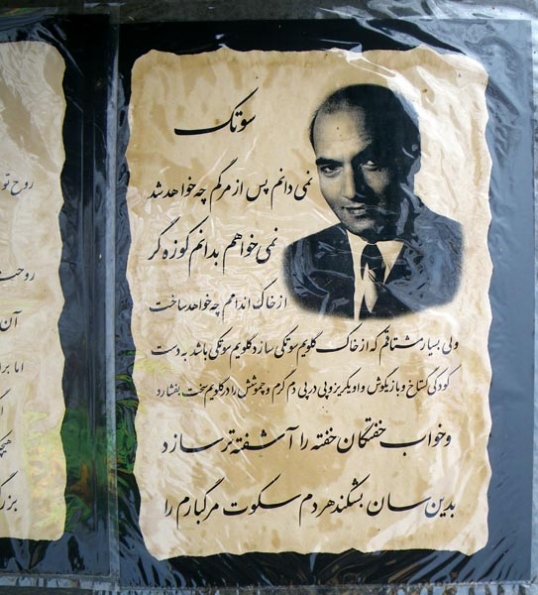 سوتک
نمی دانم پس از مرگم چه خواهد شد
نمی خواهم بدانم کوزه گر
از خاک اندامم چه خواهد ساخت
ولی بسیار مشتاقم که از خاک گلویم سوتکی سازد گلویم سوتکی باشد به دست
کودکی گستاخ و بازیگوش و او یکریز و پی در پی دم گرم و چموشش را در گلویم سخت بفشارد
و خواب خفتگان خفته را آشفته تر سازد
بدین سان بشکند هر دم سکوت مرگبارم را
روح تو
آن
اما برا
هیچ
بزرگ